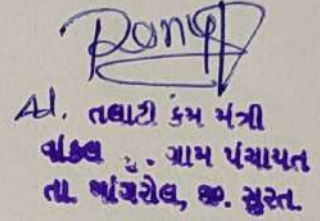 તલાટી કમ મંત્રી
વાંકલ ગ્રામ પંચાયત
તા. માંગરોલ, જી. સુરત.